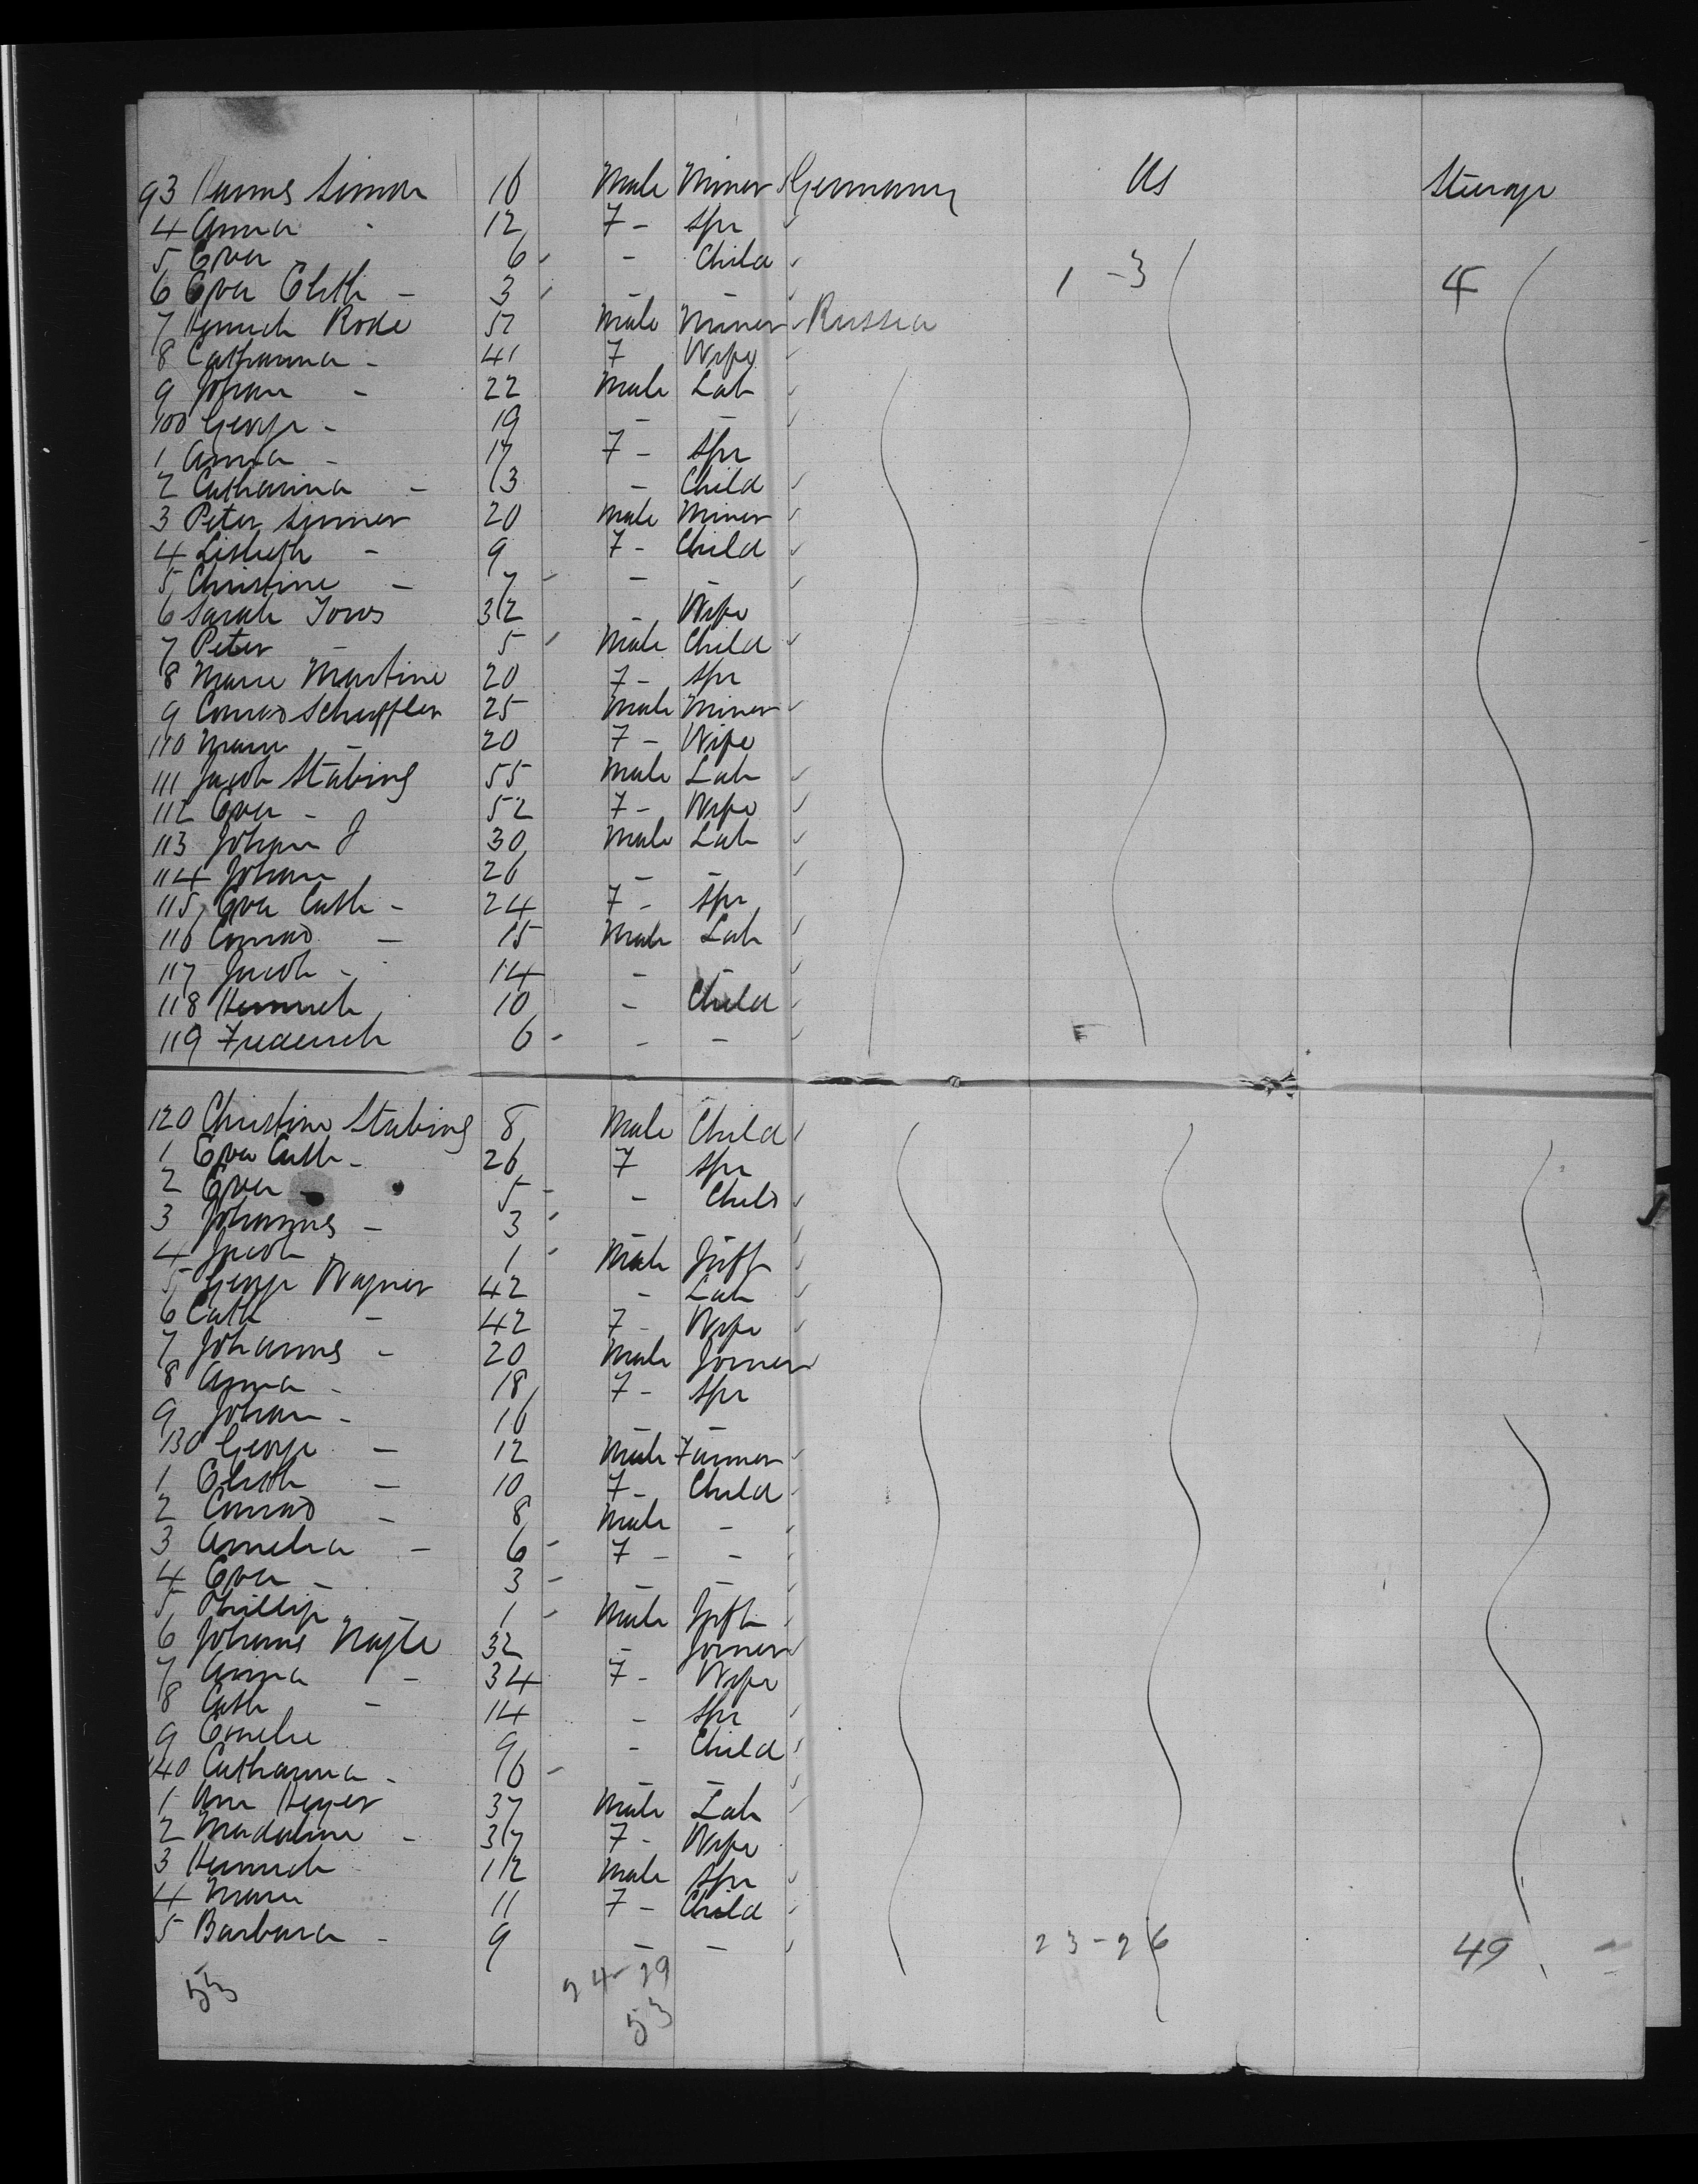 93 Hanns Simon 16 Male Miner Germany Us Steerage
4 Anna - 12 F - Spr
5 Eva 6 - Child 1 - 3 4
6 Eva Elisth - 3 - -
7 Heinrich Rode 52 Male Miner Russia
8 Catharina - 41 F Wife
9 Johann - 22 Male Lab
100 George - 19 - -
1 Anna - 17 F - Spr
2 Catharina - 13 - Child
3 Peter Sinner 20 Male Miner
4 Lisbeth - 9 F - Child
5 Christine - 7 - -
6 Sarah 32 - Wife
7 Peter - 5 Male Child
8 Marie Martine 20 F - Spr
9 Conrad Scheffler 25 Male Miner
110 Marie - 20 F - Wife
111 Jacob Stabing 55 Male Lab
112 Eva - 52 F - Wife
113 Johann J 30 Male Lab
114 Johann 26 - -
115 Eva Cath - 24 F - Spr
116 Conrad - 15 Male Lab
117 Jacob - 14 - -
118 Heinrich 10 - Child
119 Frederich 6 - - -
120 Christine Stabing 8 Male Child
1 Eva Cath - 26 F Spr
2 Eva - 5 - - Child
3 Johannes - 3 - -
4 Jacob 1 Male Inft
5 George Wagner 42 - Lab
6 Cath - 42 F - Wife
7 Johannes - 20 Male Joiner
8 Anna - 18 F - Spr
9 Johan - 16 - -
130 George - 12 Male Farmer
1 Elisth - 10 F - Child
2 Conrad - 8 Male -
3 Amelia - 6 - F - -
4 Eva - 3 - - -
5 Phillip - 1 - Male Inft
6 Johanns 32 - Joiner
7 Anna - 34 F - Wife
8 Cath - 14 - Spr
9 Emelie 9 - Child
140 Catharina - - -
1 Heyer 37 Male Lab
2 Madaline - 37 F - Wife
3 Heinrich 12 Male Spr
4 Marie 11 F - Child
5 Barbara - 9 - - 23 - 26 49
53 24 - 29
53